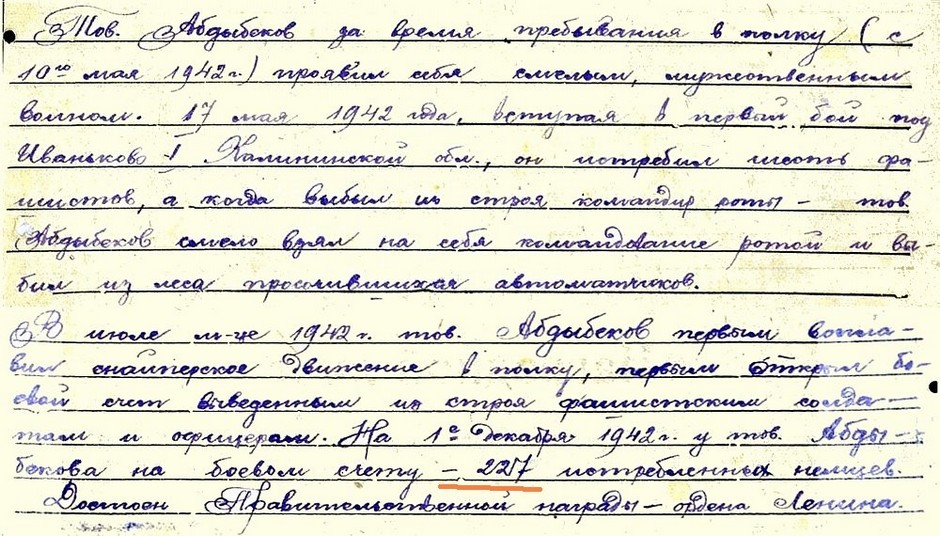 Тов. Абдыбеков за время пребывания в полку (с
10го мая 1942 г.) проявил себя смелым, мужественным
воином. 17 мая 1942 года, вступая в первый бой под
Иваньково I Калининской обл., он истребил шесть фа-
шистов, а когда выбыл из строя командир роты - тов.
Абдыбеков смело взял на себя командование ротой и вы-
бил из леса просочившихся автоматчиков.
В июле м-це 1942 г. тов. Абдыбеков первым возгла-
вил снайперское движение в полку, первым открыл бо-
евой счет выведенным из строя фашистским солда-
там и офицерам. На 1е декабря 1942 г. у тов. Абды-
бекова на боевом счету - 227 истребленных немцев.
Достоен Правительственной награды - ордена Ленина.